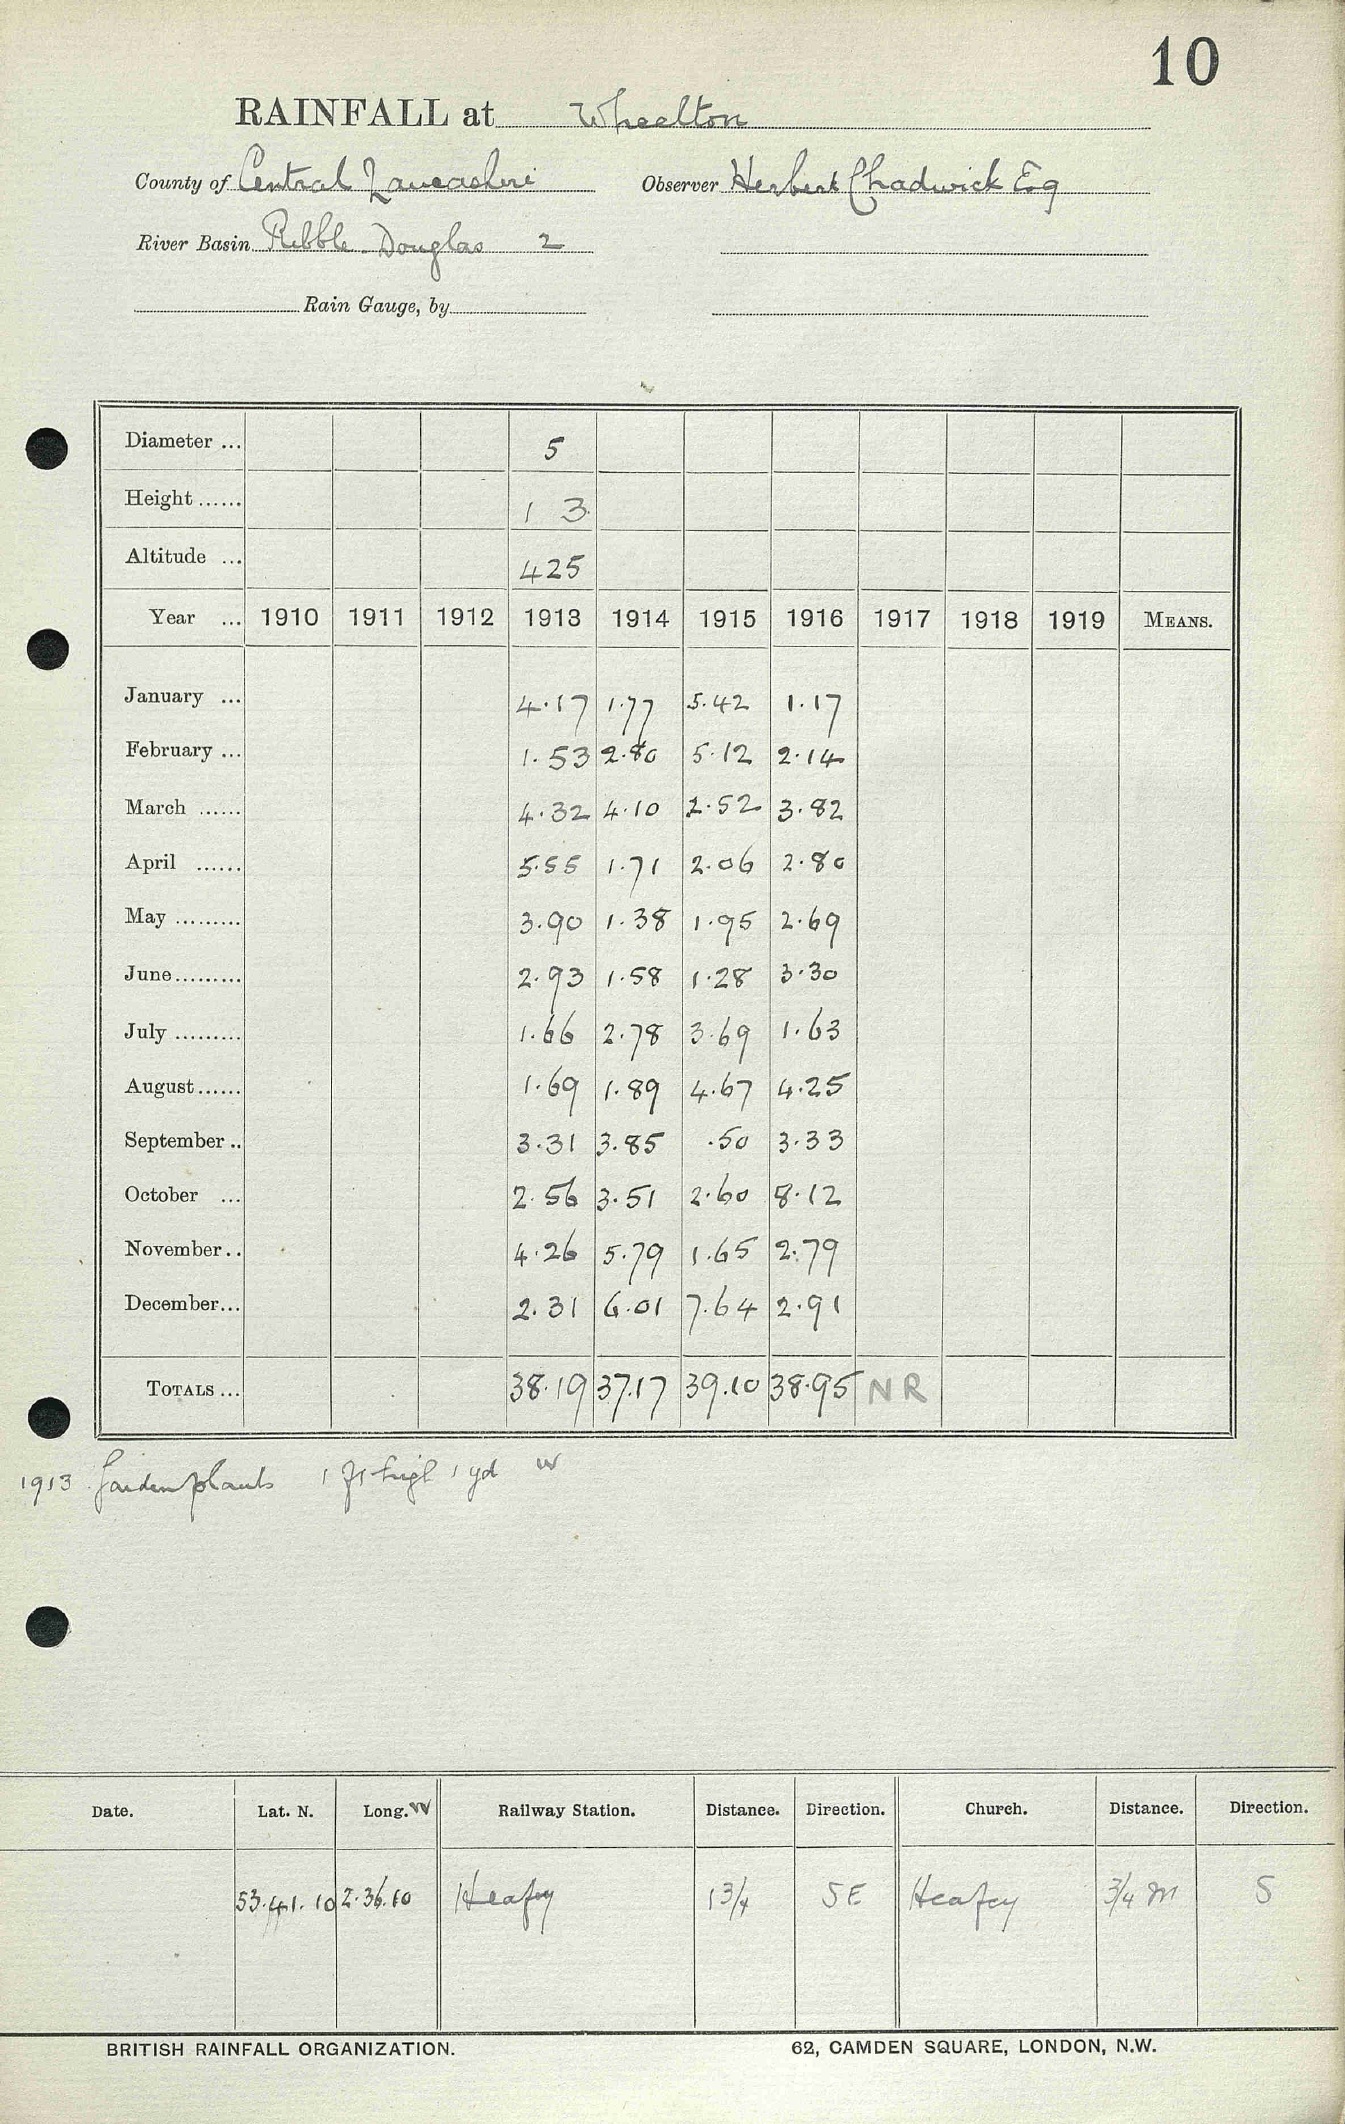 10
RAINFALL at Wheelton
County of Central Lancashire Observer Herbert Chadwick Esq
River Basin Ribble-Douglas 2
Rain Gauge, by
Diameter ... 5
Height ...... 1 3
Altitude ... 425
Year ... 1910 1911 1912 1913 1914 1915 1916 1917 1918 1919 MEANS.
January ... 4.17 1.77 5.42 1.17
February ... 1.53 2.80 5.12 2.14
March ...... 4.32 4.10 2.52 3.82
April ...... 5.55 1.71 2.06 2.80
May ......... 3.90 1.38 1.95 2.69
June ......... 2.93 1.58 1.28 3.30
July ......... 1.66 2.78 3.69 1.63
August ...... 1.69 1.89 4.67 4.25
September .. 3.31 3.85 .50 3.33
October ... 2.56 3.51 2.60 8.12
November .. 4.26 5.79 1.65 2.79
December ... 2.31 6.01 7.64 2.91
TOTALS ... 38.19 37.17 39.10 38.95 NR
1913 Garden plants 1 ft high 1 yd W
Date. Lat. N. Long. W Railway Station. Distance. Direction. Church. Distance. Direction.
53.41.10 2.36.10 Heafey 1 3/4 SE Heafey 3/4 m S
BRITISH RAINFALL ORGANIZATION. 62, CAMDEN SQUARE, LONDON, N.W.